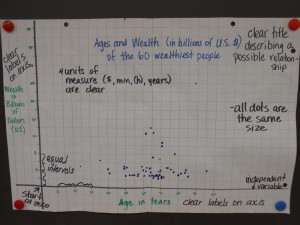 Ages and Wealth (in billions of U.S. $)
of the 60 wealthiest people
clear title
describing a
possible relation-
ship
clear
labels
on axis
Wealth
in
Billions
of
Dollars
(US)
*units of
measure ($, min, (h), years)
are clear
-all dots are
the same
size.
equal
intervals
independent
variable
Start
at
zero
Age in Years
clear labels on axis